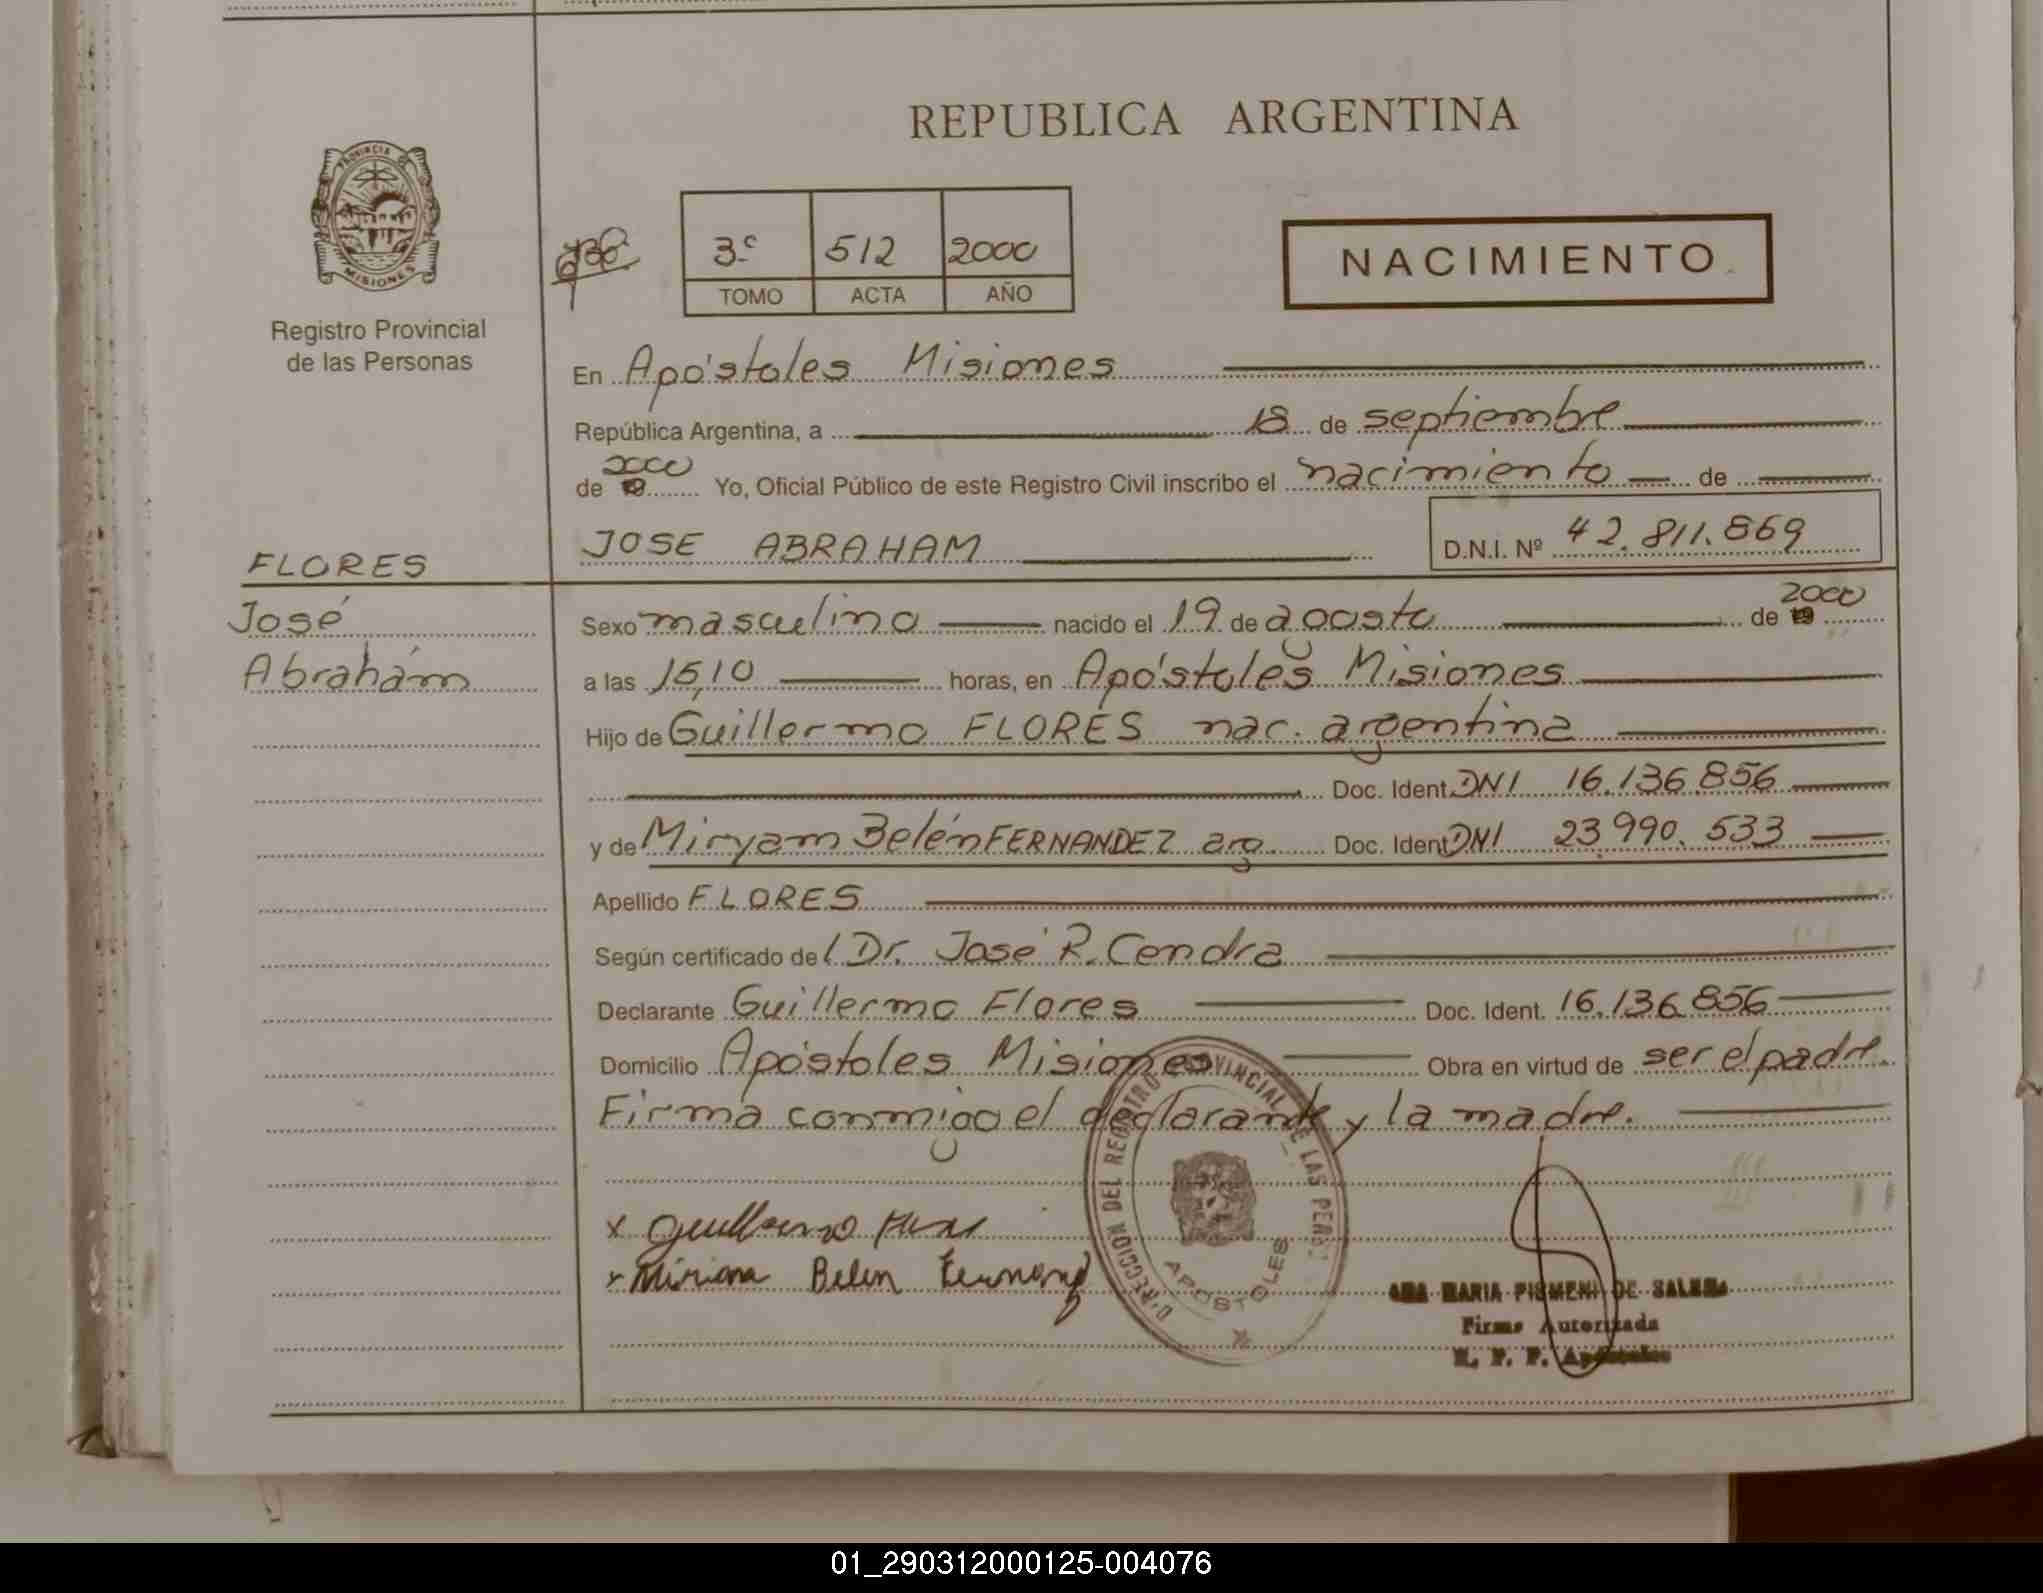 REPUBLICA ARGENTINA
PROVINCIA DE
MISIONES
Registro Provincial
de las Personas
3º 512 2000
TOMO ACTA AÑO
NACIMIENTO
En Apóstoles Misiones
República Argentina, a 18 de septiembre
2000
de 19 Yo, Oficial Público de este Registro Civil inscribo el nacimiento de
JOSE ABRAHAM D.N.I. Nº 42.811.869
FLORES
José
Abrahám
Sexo masculino nacido el 19 de agosto de 19 2000
a las 15,10 horas, en Apóstoles Misiones
Hijo de Guillermo FLORES nac. argentina
Doc. Ident. DNI 16.136.856
y de Miryam Belén FERNANDEZ arg. Doc. Ident. DNI 23.990.533
Apellido FLORES
Según certificado del Dr. José R. Cendra
Declarante Guillermo Flores Doc. Ident. 16.136.856
Domicilio Apóstoles Misiones Obra en virtud de ser el padre.
Firma conmigo el declarante y la madre.
x Guillermo Flores
x Miriam Belen Fernand
DIRECCION DEL REGISTRO PROVINCIAL DE LAS PERS
APOSTOLES
ANA MARIA PISMENI DE SALENA
Firma Autorizada
R. P. P. Apóstoles
01_290312000125-004076